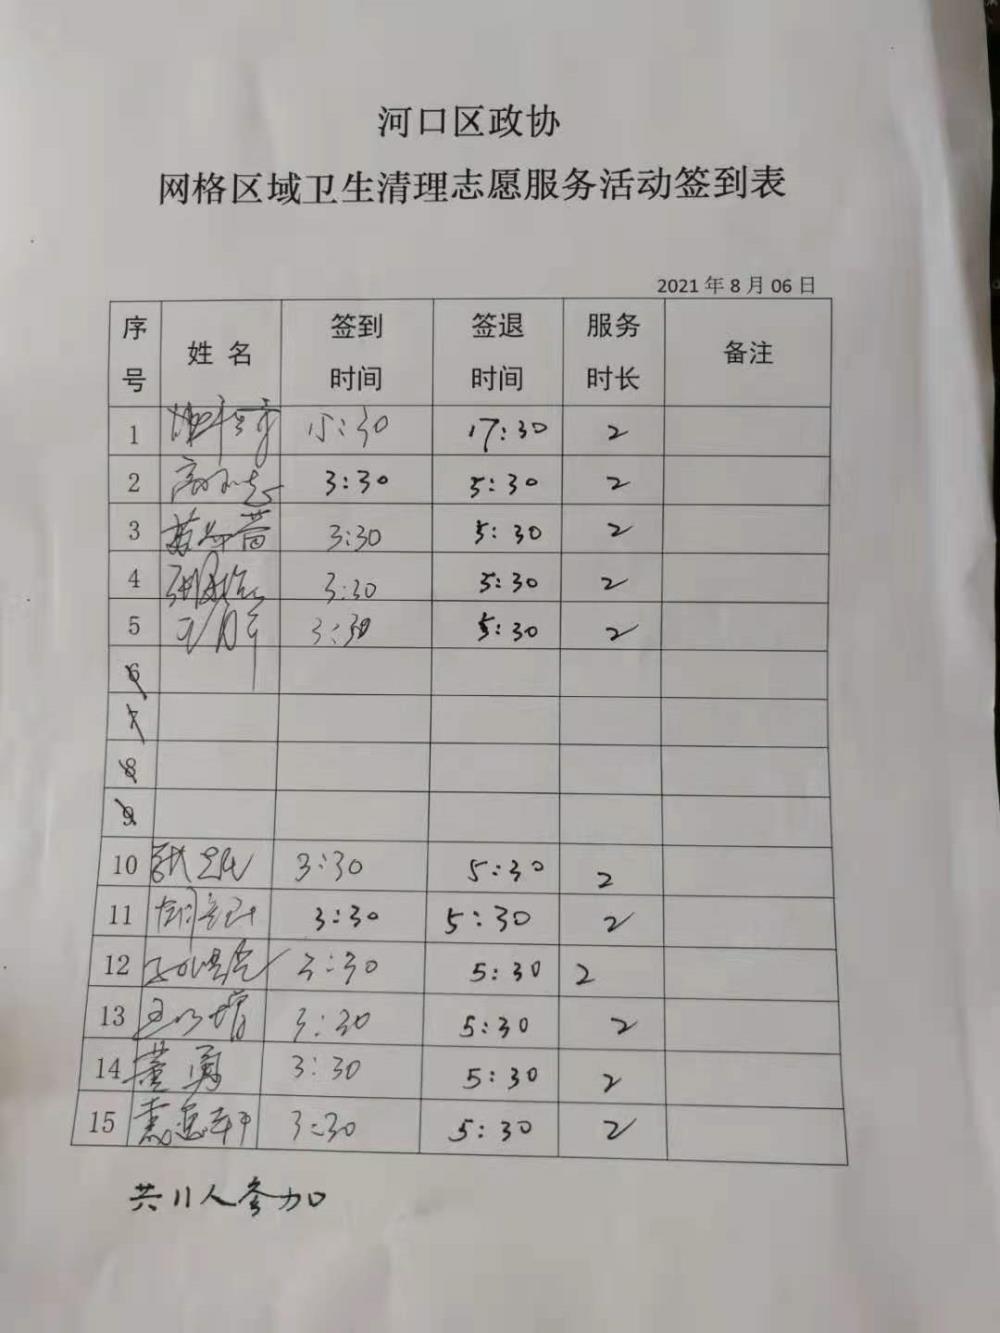 河口区政协
网格区域卫生清理志愿服务活动签到表
2021 年 8 月 06 日
序号 姓 名 签到时间 签退时间 服务时长 备注
1 15:30 17:30 2
2 3:30 5:30 2
3 3:30 5:30 2
4 3:30 5:30 2
5 3:30 5:30 2
6
7
8
9
10 3:30 5:30 2
11 3:30 5:30 2
12 3:30 5:30 2
13 3:30 5:30 2
14 董勇 3:30 5:30 2
15 3:30 5:30 2
共11人参加